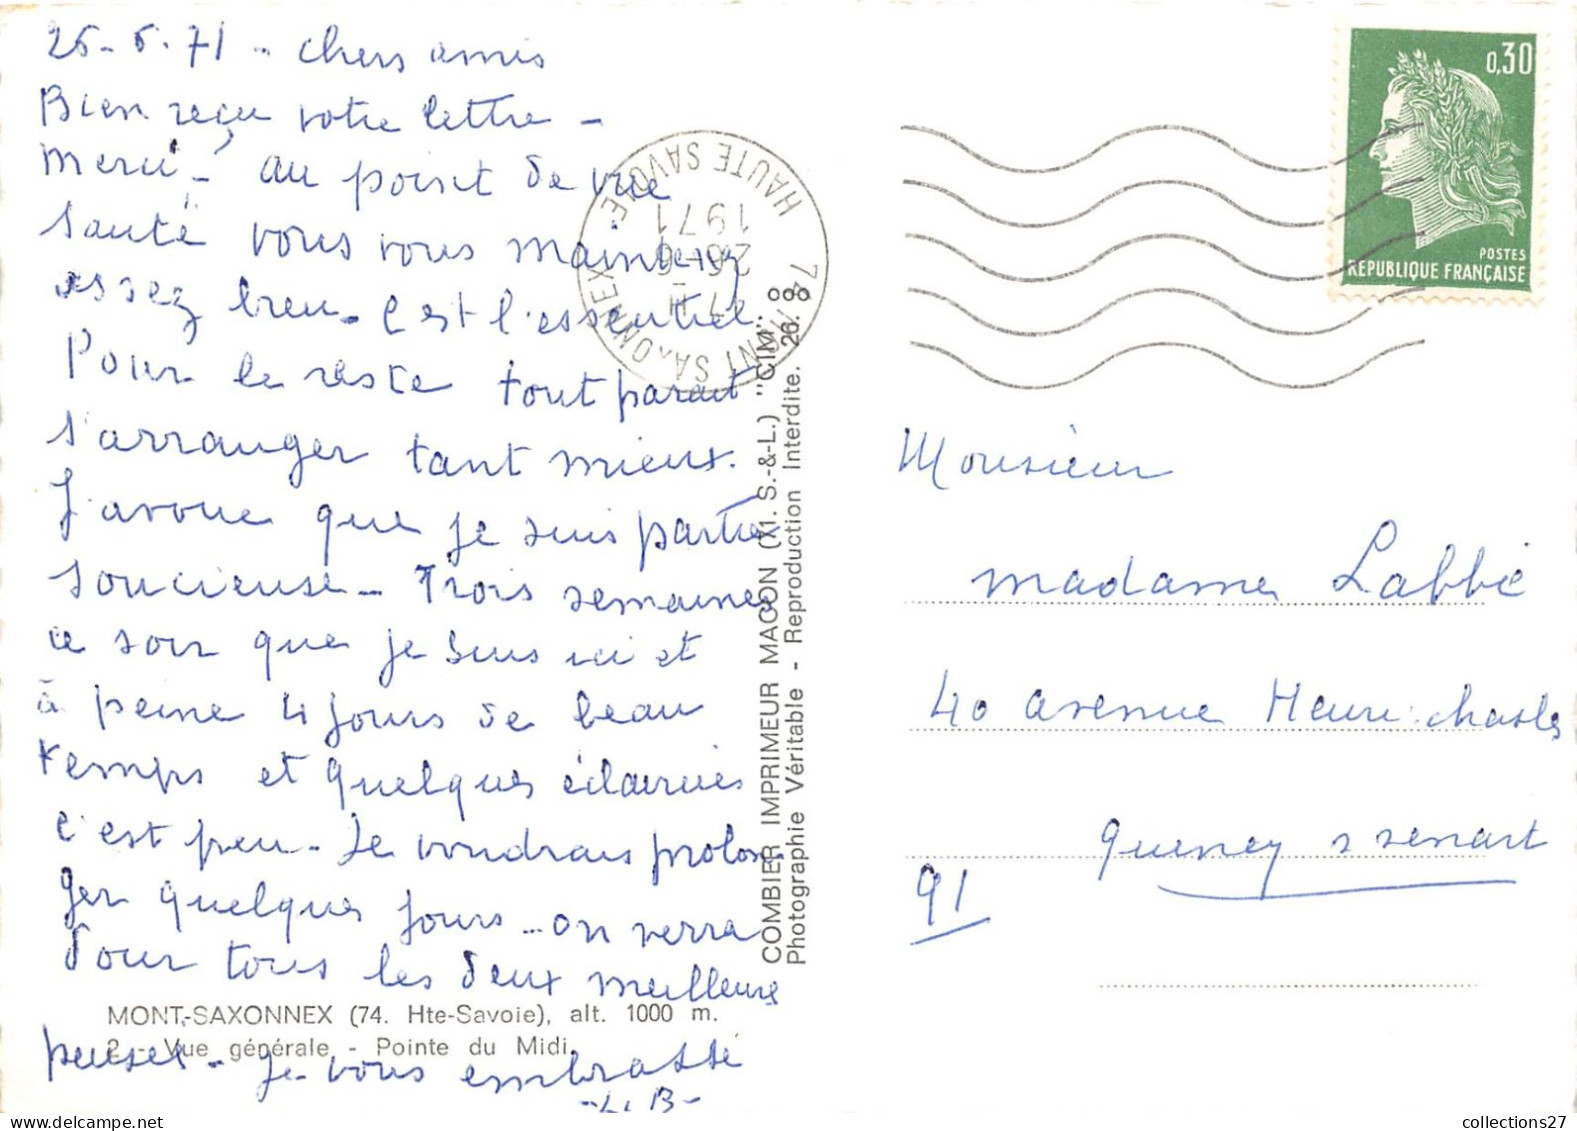 25-6-71 - chers amis
Bien reçu votre lettre -
merci - au point de vue
santé vous vous mainteng
assez bien - c'est l'essentiel.
Pour le reste tout parait
s'arranger tant mieux.
J'avoue que je suis partie
soucieuse - Trois semaines
ce soir que je suis ici et
à peine 4 jours de beau
temps et quelques éclaircies
c'est peu - Je voudrais prolon
ger quelques jours... on verra
Pour tous les deux meilleures
pensées - Je vous embrasse
MONT-SAXONNEX (74. Hte-Savoie), alt. 1000 m.
2 - Vue générale - Pointe du Midi.
COMBIER IMPRIMEUR MACON (X1. S.-&-L.) "CIM"
Photographie Véritable - Reproduction Interdite. 26. 88
74 MONT SAXONNEX
HAUTE SAVOIE
26-6
1971
0,30
POSTES
REPUBLIQUE FRANÇAISE
Monsieur
madame Labbé
40 avenue Henri chasles
quincy s senart
91
collections27